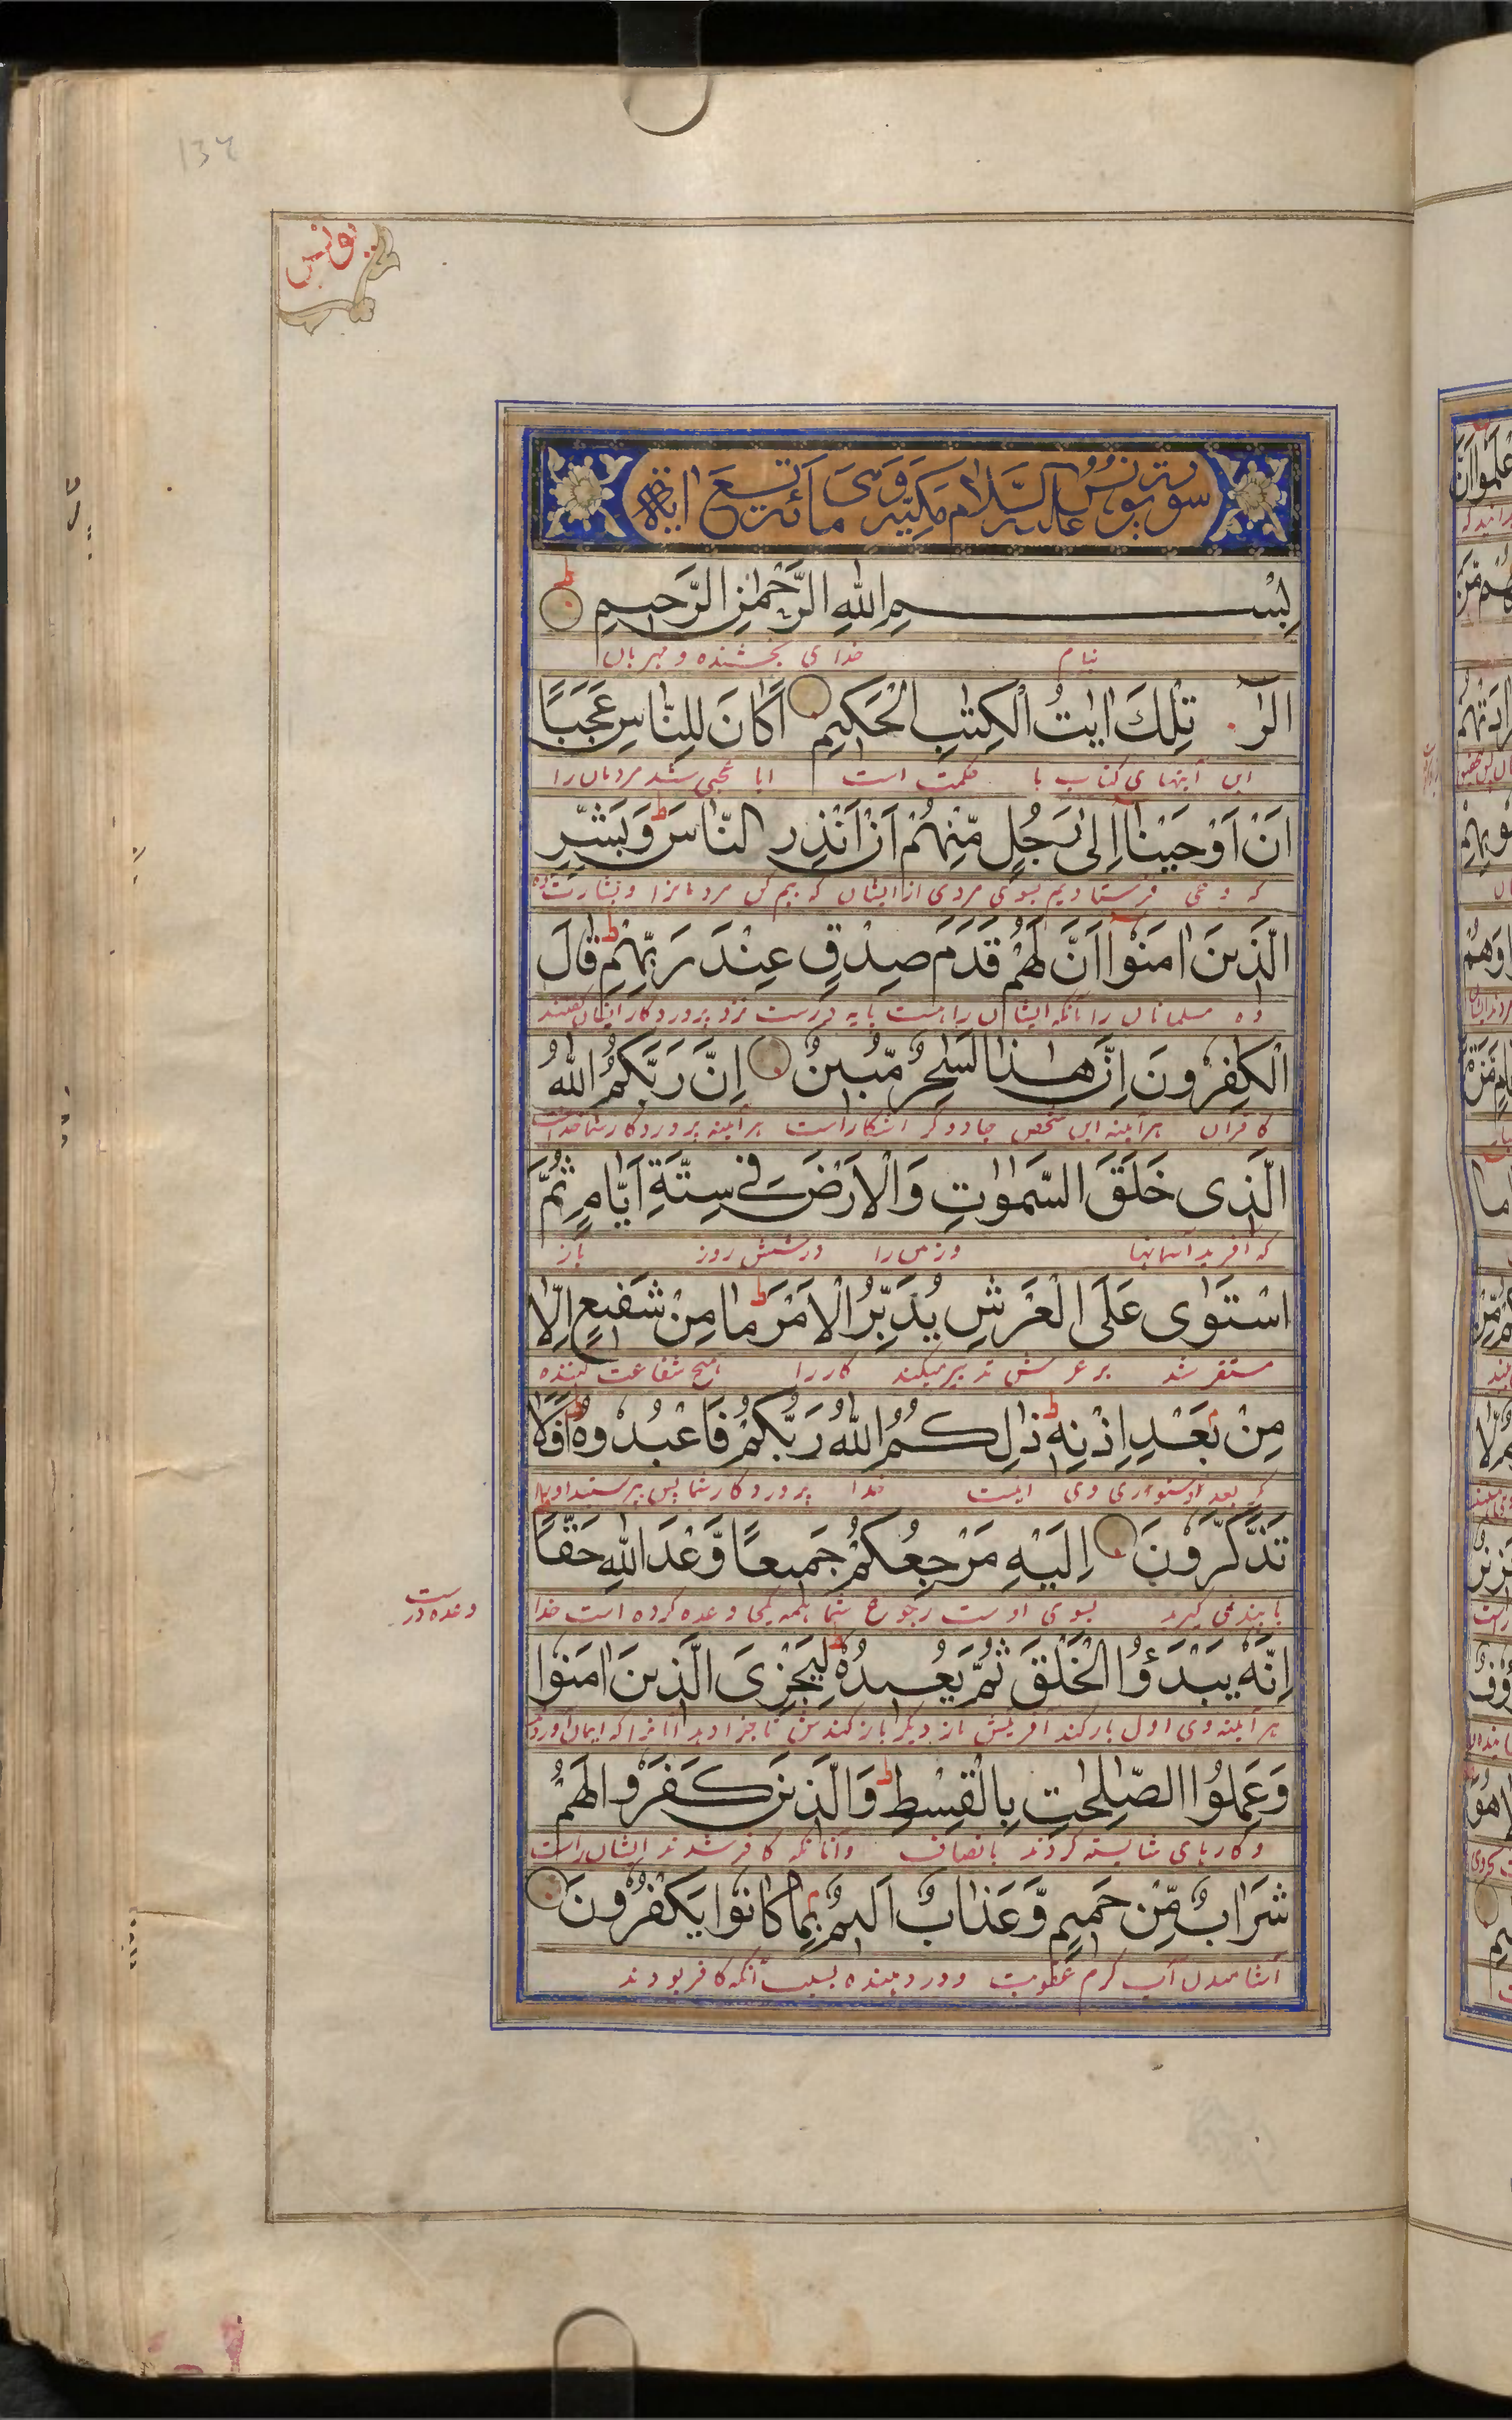 134
یونس
سورة یونس علیه السلام مکیة وهی مائة وتسع ایة
بِسْمِ اللهِ الرَّحْمٰنِ الرَّحِیمِ
بنام خدای بخشنده و مهربان
الٓرٰ تِلْكَ اٰیٰتُ الْكِتٰبِ الْحَكِیمِ اَكَانَ لِلنَّاسِ عَجَبًا
این آیتهای کتاب با حکمت است ایا عجبی شد مردمان را
اَنْ اَوْحَیْنَا اِلٰی رَجُلٍ مِّنْهُمْ اَنْ اَنْذِرِ النَّاسَ وَبَشِّرِ
که وحی فرستادیم بسوی مردی از ایشان که بیم کن مردمانرا و بشارت
الَّذِینَ اٰمَنُوا اَنَّ لَهُمْ قَدَمَ صِدْقٍ عِنْدَ رَبِّهِمْ قَالَ
ده مسلمانان را بآنکه ایشان را هست پایه درست نزد پروردکار ایشان کفتند
الْكٰفِرُونَ اِنَّ هٰذَا لَسٰحِرٌ مُّبِینٌ اِنَّ رَبَّكُمُ اللهُ
کافران هرآینه این شخص جادوکر آشکار است هرآینه پروردکار شما خداست
الَّذِی خَلَقَ السَّمٰوٰتِ وَالْاَرْضَ فِی سِتَّةِ اَیَّامٍ ثُمَّ
که آفرید آسمانها و زمین را در شش روز باز
اسْتَوٰی عَلَی الْعَرْشِ یُدَبِّرُ الْاَمْرَ مَا مِنْ شَفِیعٍ اِلَّا
مستقر شد بر عرش تدبیر میکند کار را هیچ شفاعت کننده
مِنْ بَعْدِ اِذْنِهٖ ذٰلِكُمُ اللهُ رَبُّكُمْ فَاعْبُدُوهُ اَفَلَا
مکر بعد دستوری وی اینست خدا پروردکار شما پس بپرستید او را
تَذَكَّرُونَ اِلَیْهِ مَرْجِعُكُمْ جَمِیعًا وَّعْدَ اللهِ حَقًّا
یا پند نمی کیرید بسوی اوست رجوع شما همه یکجا وعده کرده است خدا
وعده درست
اِنَّهٗ یَبْدَؤُا الْخَلْقَ ثُمَّ یُعِیدُهٗ لِیَجْزِیَ الَّذِینَ اٰمَنُوا
هرآینه وی اول بار کند آفرینش باز دیکر بار کندش تا جزا دهد آنانرا که ایمان آوردند
وَعَمِلُوا الصّٰلِحٰتِ بِالْقِسْطِ وَالَّذِینَ كَفَرُوا لَهُمْ
و کارهای شایسته کردند بانصاف و آنانکه کافر شدند ایشان راست
شَرَابٌ مِّنْ حَمِیمٍ وَّعَذَابٌ اَلِیمٌ بِمَا كَانُوا یَكْفُرُونَ
آشامیدن آب کرم عقوبت درد دهنده بسبب آنکه کافر بودند